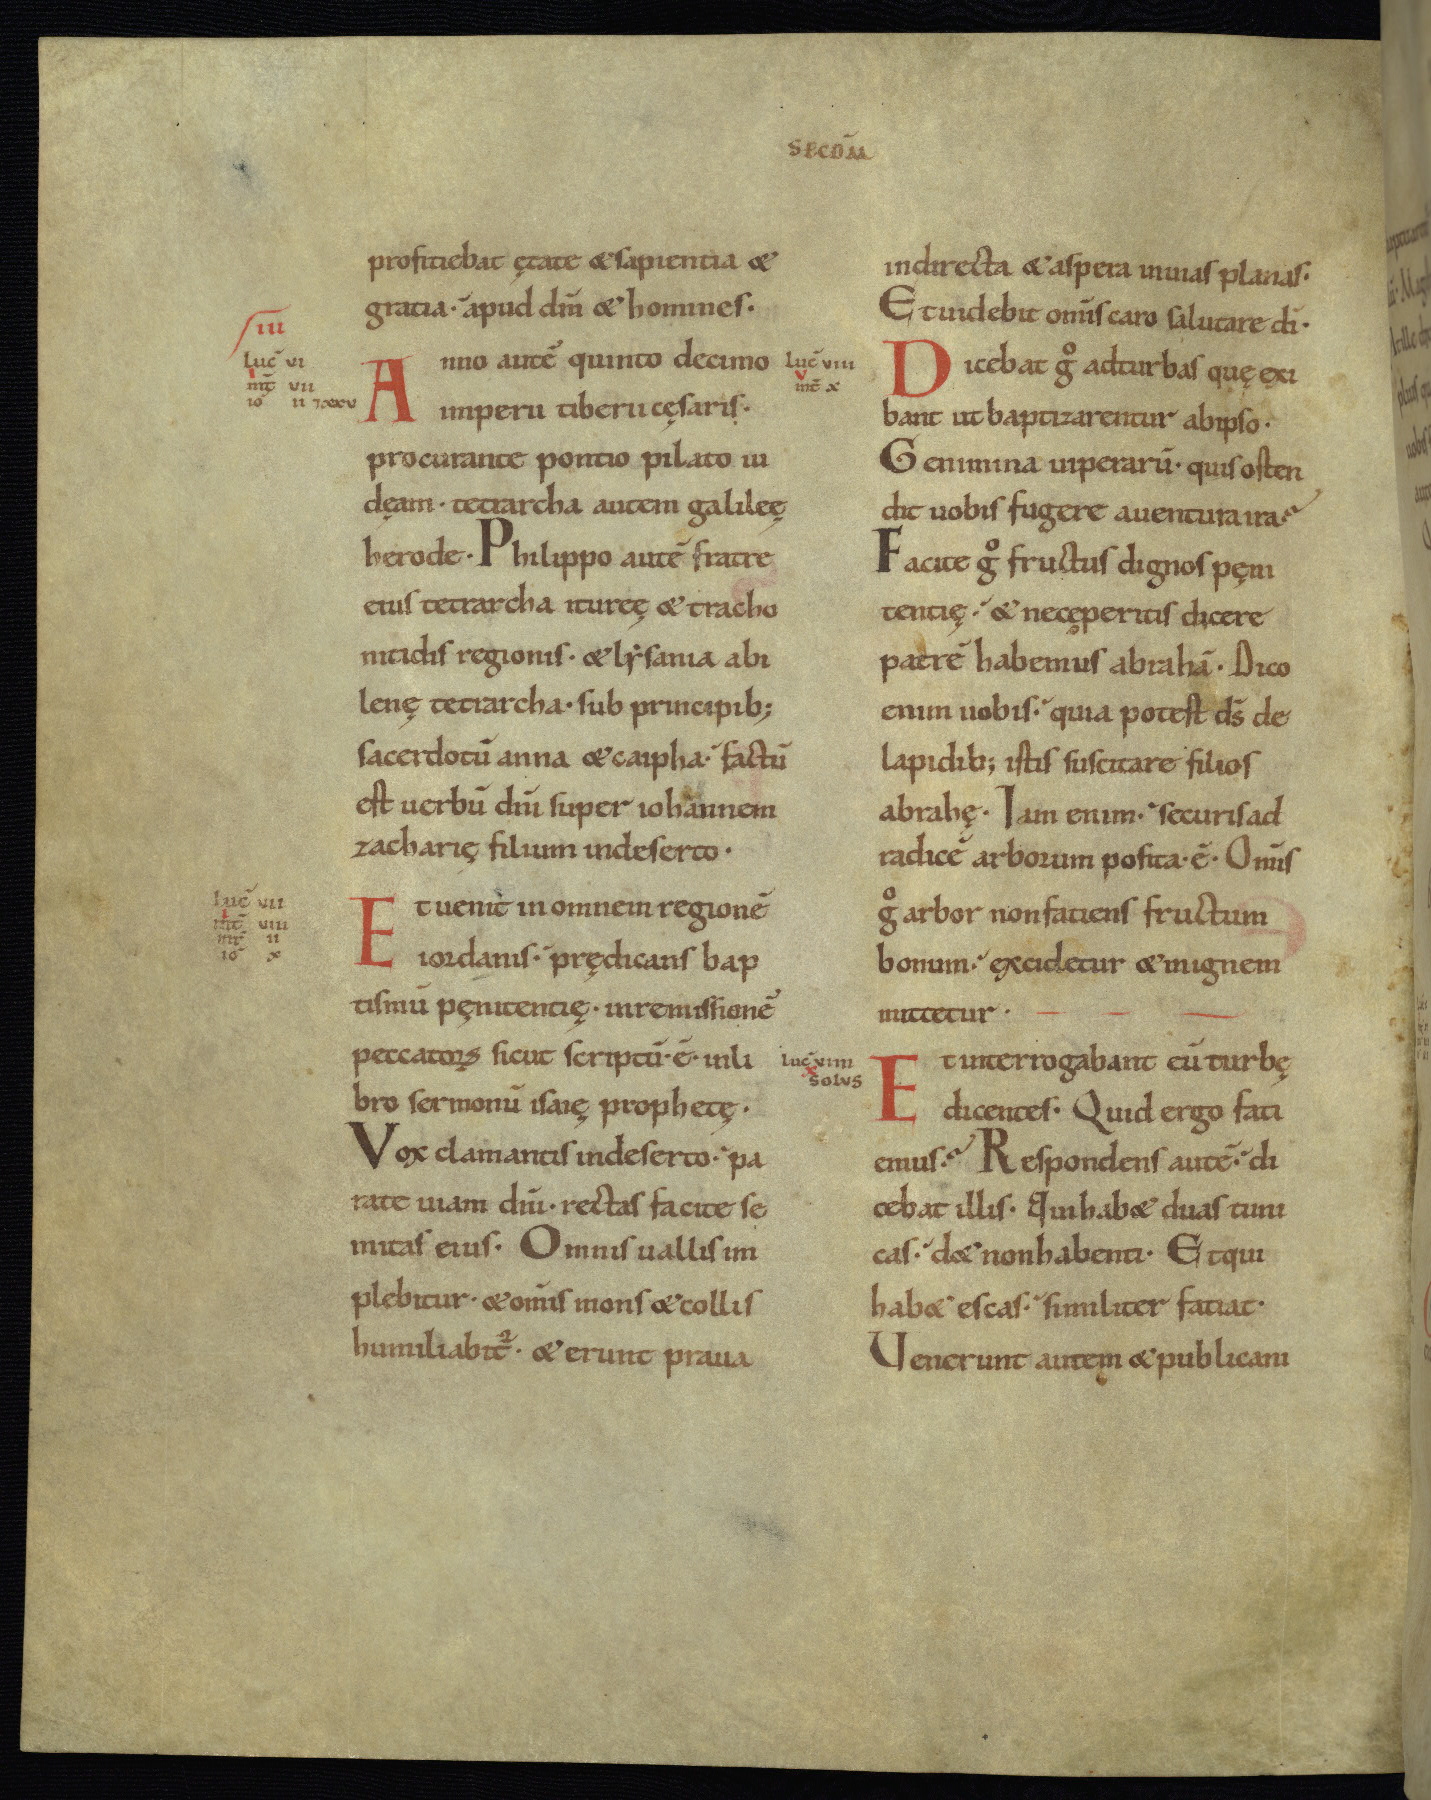 SECDM̄
profitiebat ętate & sapientia &
gratia· apud dn̄m & homines·
III
Luc̄ VI
mt̄ VII
io II
Anno autē quinto decimo
imperii tiberii cęsaris·
procurante pontio pilato iu
dęam· tetrarcha autem galileę
herode· Philippo autē fratre
eius tetrarcha itureę & tracho
nitidis regionis· & lẏsania abi
lenę tetrarcha· sub principib;
sacerdotū anna & caipha· factū
est uerbū dn̄i super iohannem
zacharię filium in deserto·
Luc̄ VII
mt̄ VIII
mr̄ II
io X
Et uenit in omnem regionē
iordanis· prędicans bap
tismū pęnitentię· in remissionē
peccatoꝝ sicut scriptū·ē· in li
bro sermonū isaię prophetę·
Vox clamantis in deserto· pa
rate uiam dn̄i· rectas facite se
mitas eius· Omnis uallis im
plebitur· & om̄is mons & collis
humiliabit᷑· & erunt praua
in directa & aspera in uias planas·
Et uidebit om̄is caro salutare dī·
Luc̄ VIII
mt̄ X
Dicebat gͦ ad turbas quę exi
bant ut baptizarentur ab ipso·
Genimina uiperarū· quis osten
dit uobis fugere a uentura ira?
Facite gͦ fructus dignos pęni
tentię· & ne cęperitis dicere
patrē habemus abrahā· Dico
enim uobis· quia potest ds̄ de
lapidib; istis suscitare filios
abrahę· Iam enim· securis ad
radicē arborum posita·ē· Om̄is
gͦ arbor non fatiens fructum
bonum· excidetur & in ignem
mittetur·
Luc̄ VIIII
X
solus
Et interrogabant eū turbę
dicentes· Quid ergo fati
emus? Respondens autē· di
cebat illis· Qui hab& duas tuni
cas· d& non habenti· Et qui
hab& escas· similiter fatiat·
Uenerunt autem & publicani